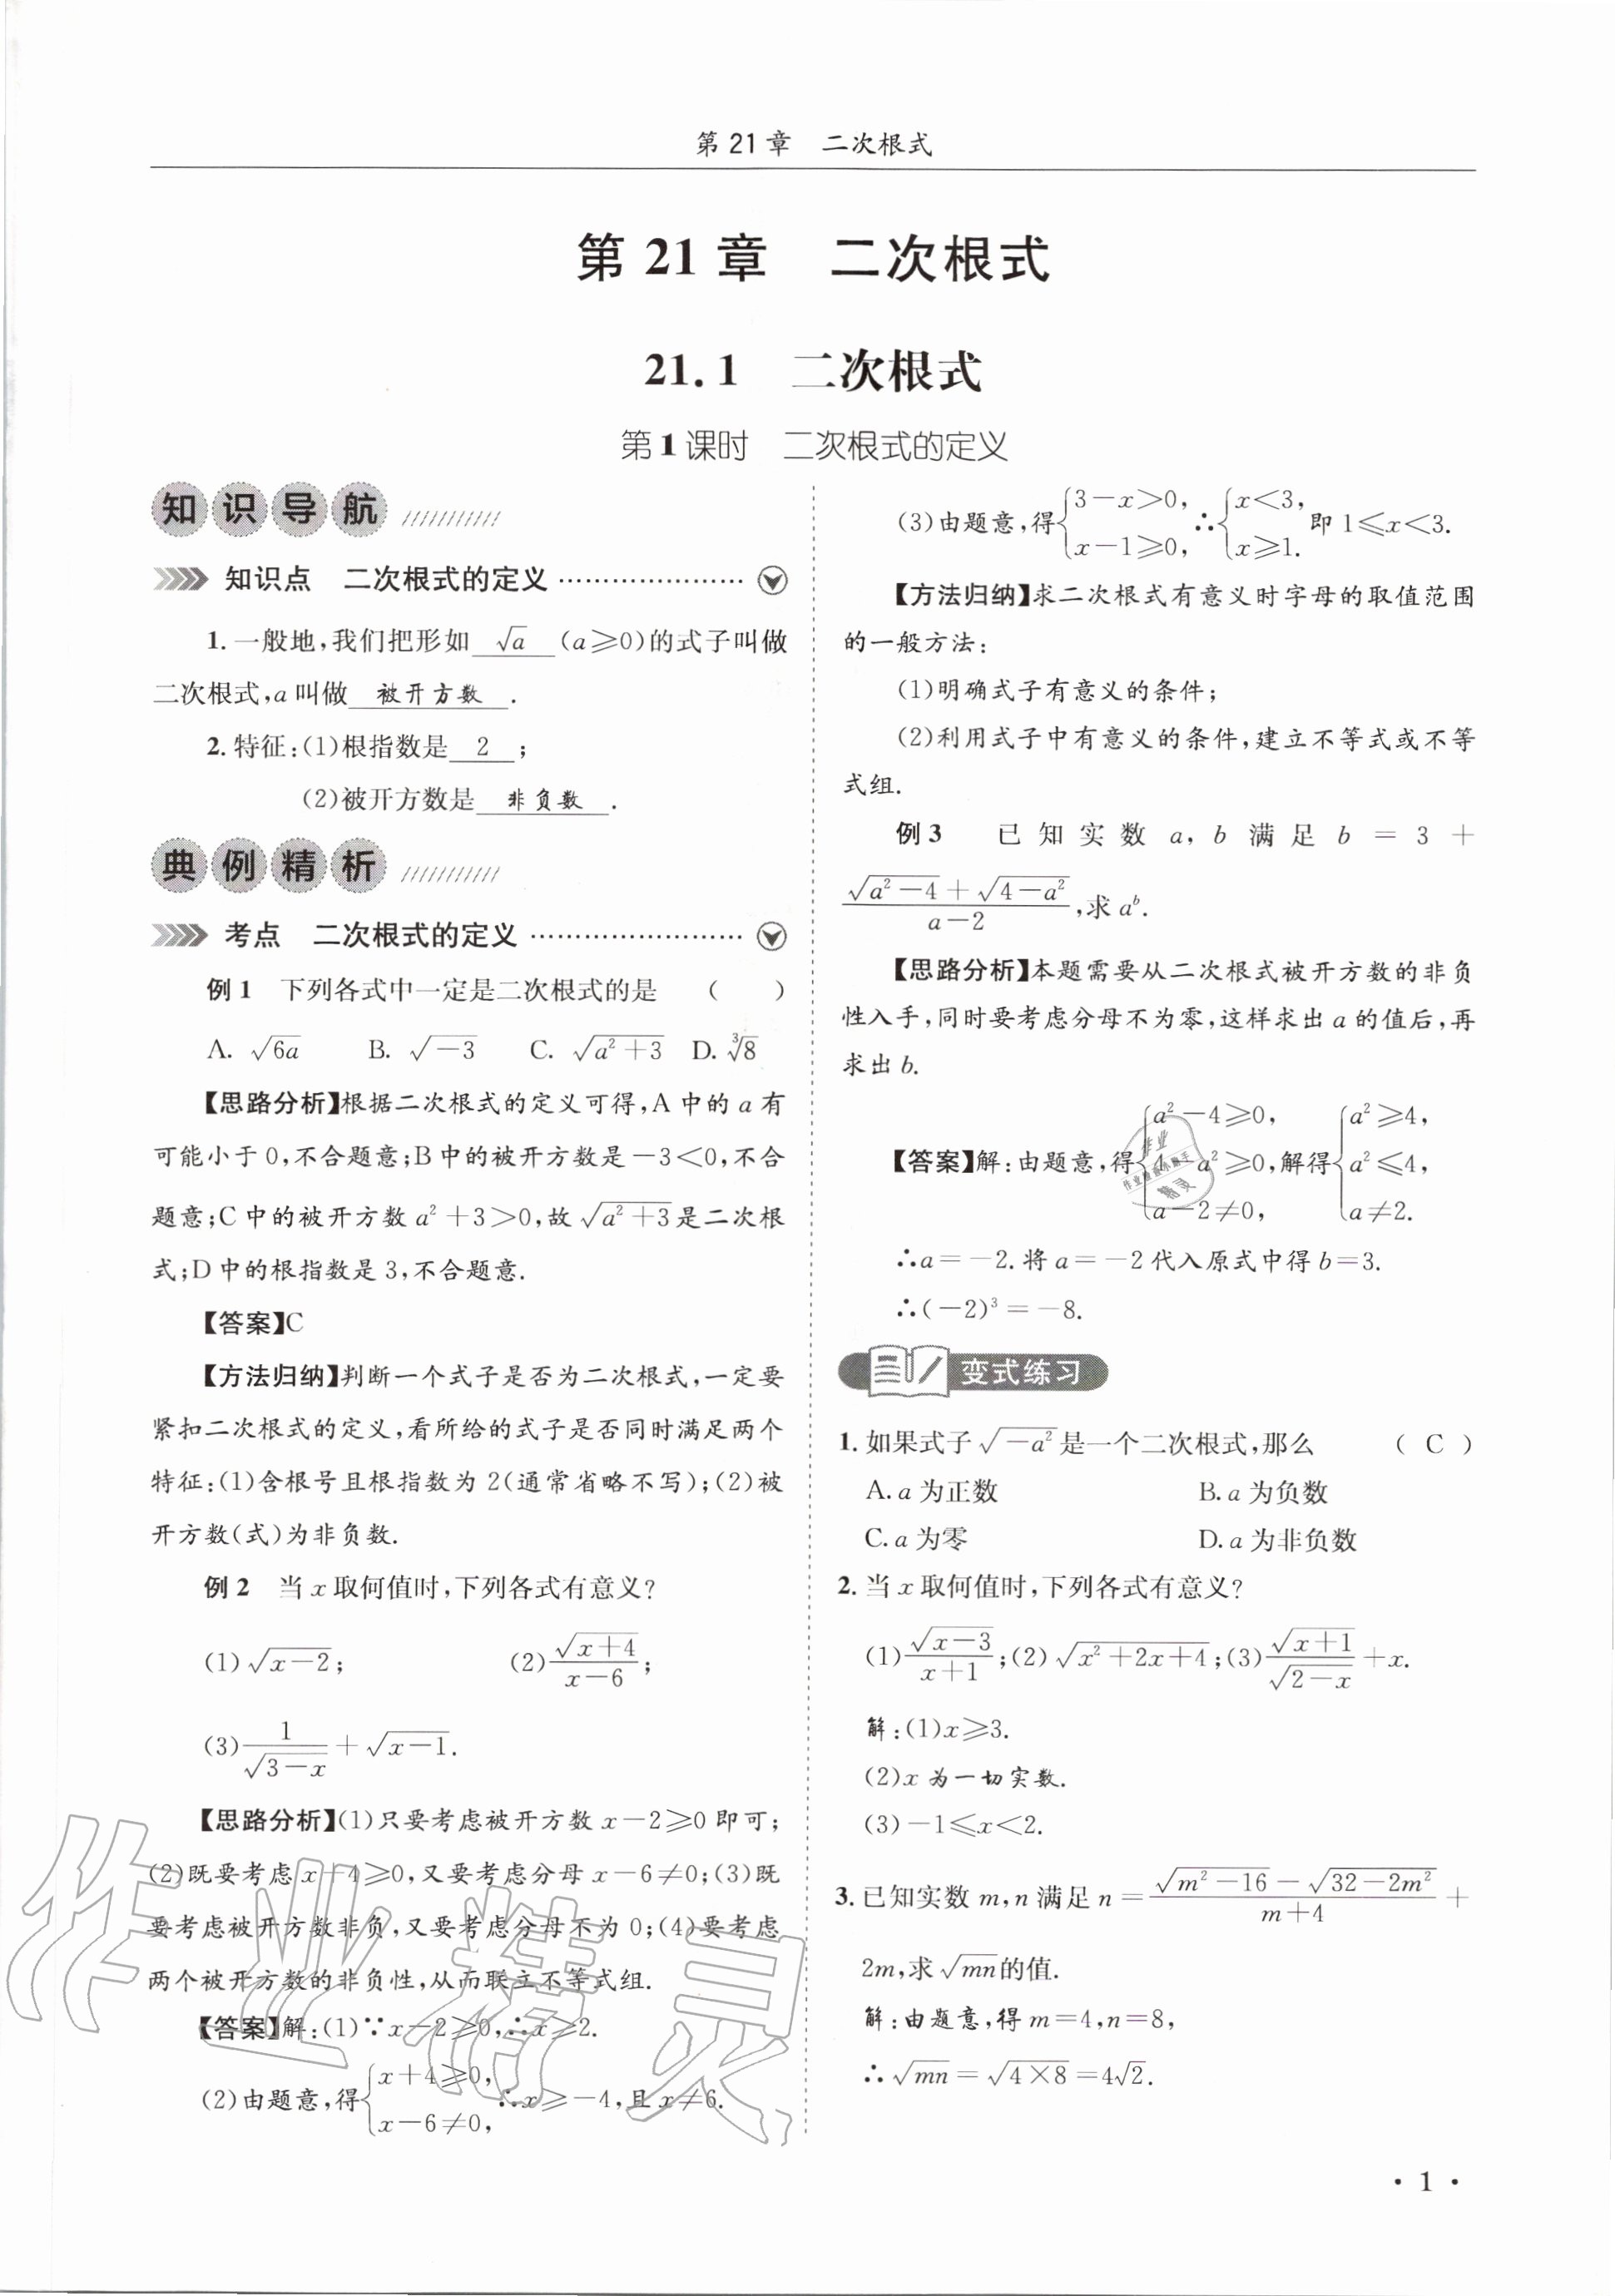 第 21 章　二次根式
第 21 章　二次根式
21.1　二次根式
第 1 课时　二次根式的定义
知识导航
知识点　二次根式的定义
1. 一般地,我们把形如 √a (a≥0)的式子叫做
二次根式,a 叫做 被开方数 .
2. 特征:(1)根指数是 2 ;
(2)被开方数是 非负数 .
典例精析
考点　二次根式的定义
例 1　下列各式中一定是二次根式的是　(　　)
A. √(6a)　B. √(-3)　C. √(a²+3)　D. ∛8
【思路分析】根据二次根式的定义可得,A 中的 a 有
可能小于 0,不合题意;B 中的被开方数是 -3<0,不合
题意;C 中的被开方数 a²+3>0,故 √(a²+3) 是二次根
式;D 中的根指数是 3,不合题意.
【答案】C
【方法归纳】判断一个式子是否为二次根式,一定要
紧扣二次根式的定义,看所给的式子是否同时满足两个
特征:(1)含根号且根指数为 2(通常省略不写);(2)被
开方数(式)为非负数.
例 2　当 x 取何值时,下列各式有意义?
(1)√(x-2);　(2)√(x+4)/(x-6);
(3)1/√(3-x) + √(x-1).
【思路分析】(1)只要考虑被开方数 x-2≥0 即可;
(2)既要考虑 x+4≥0,又要考虑分母 x-6≠0;(3)既
要考虑被开方数非负,又要考虑分母不为 0;(4)要考虑
两个被开方数的非负性,从而联立不等式组.
【答案】解:(1)∵x-2≥0,∴x≥2.
(2)由题意,得{x+4≥0, x-6≠0, ∴x≥-4,且 x≠6.
(3)由题意,得{3-x>0, x-1≥0, ∴{x<3, x≥1. 即 1≤x<3.
【方法归纳】求二次根式有意义时字母的取值范围
的一般方法:
(1)明确式子有意义的条件;
(2)利用式子中有意义的条件,建立不等式或不等
式组.
例 3　已知实数 a, b 满足 b = 3 +
(√(a²-4)+√(4-a²))/(a-2),求 aᵇ.
【思路分析】本题需要从二次根式被开方数的非负
性入手,同时要考虑分母不为零,这样求出 a 的值后,再
求出 b.
【答案】解:由题意,得{a²-4≥0, 4-a²≥0, a-2≠0, 解得{a²≥4, a²≤4, a≠2.
∴a=-2. 将 a=-2 代入原式中得 b=3.
∴(-2)³=-8.
变式练习
1. 如果式子 √(-a²) 是一个二次根式,那么　( C )
A. a 为正数　B. a 为负数
C. a 为零　D. a 为非负数
2. 当 x 取何值时,下列各式有意义?
(1)√(x-3)/(x+1);(2)√(x²+2x+4);(3)√(x+1)/√(2-x)+x.
解:(1)x≥3.
(2)x 为一切实数.
(3)-1≤x<2.
3. 已知实数 m,n 满足 n=(√(m²-16)-√(32-2m²))/(m+4)+
2m,求 √(mn) 的值.
解:由题意,得 m=4,n=8,
∴√(mn)=√(4×8)=4√2.
· 1 ·
作业精灵